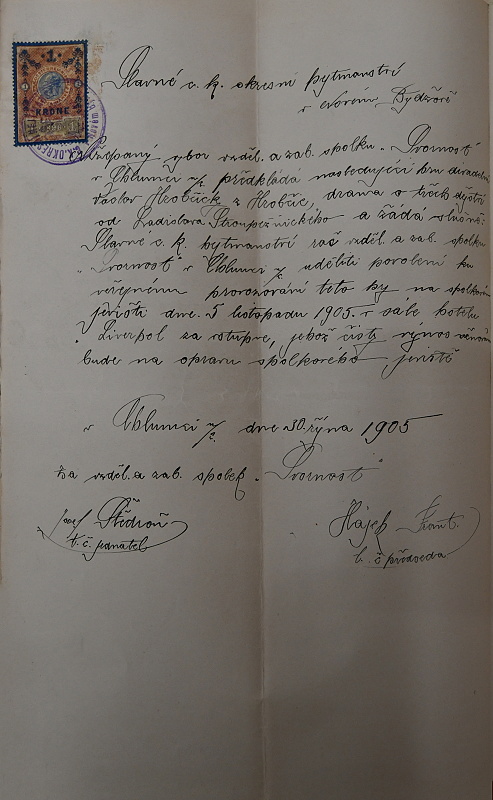 1
KRONE
Slavné c. k. okresní hejtmanství
v Novém Bydžově
výbor vzděl. a zab. spolku „Svornost"
v Chlumci n/c. předkládá následující hru divadelní
Václav Hrobčický z Hrobčic, drama o třech dějství
od Ladislava Stroupežnického a žádá slušně:
Slavné c. k. hejtmanství rač vzděl. a zab. spolku
„Svornost" v Chlumci n/c. uděliti povolení ku
veřejnému provozování této hry na spolkovém
jevišti dne 5 listopadu 1905. v sále hotelu
„Liverpol za vstupné, jehož čistý výnos věnován
bude na opravu spolkového jeviště
v Chlumci n/c. dne 30. října 1905
Za vzděl. a zab. spolek „Svornost"
Josef Štědroň
t. č. jednatel
Hájek Frant.
t. č. předseda